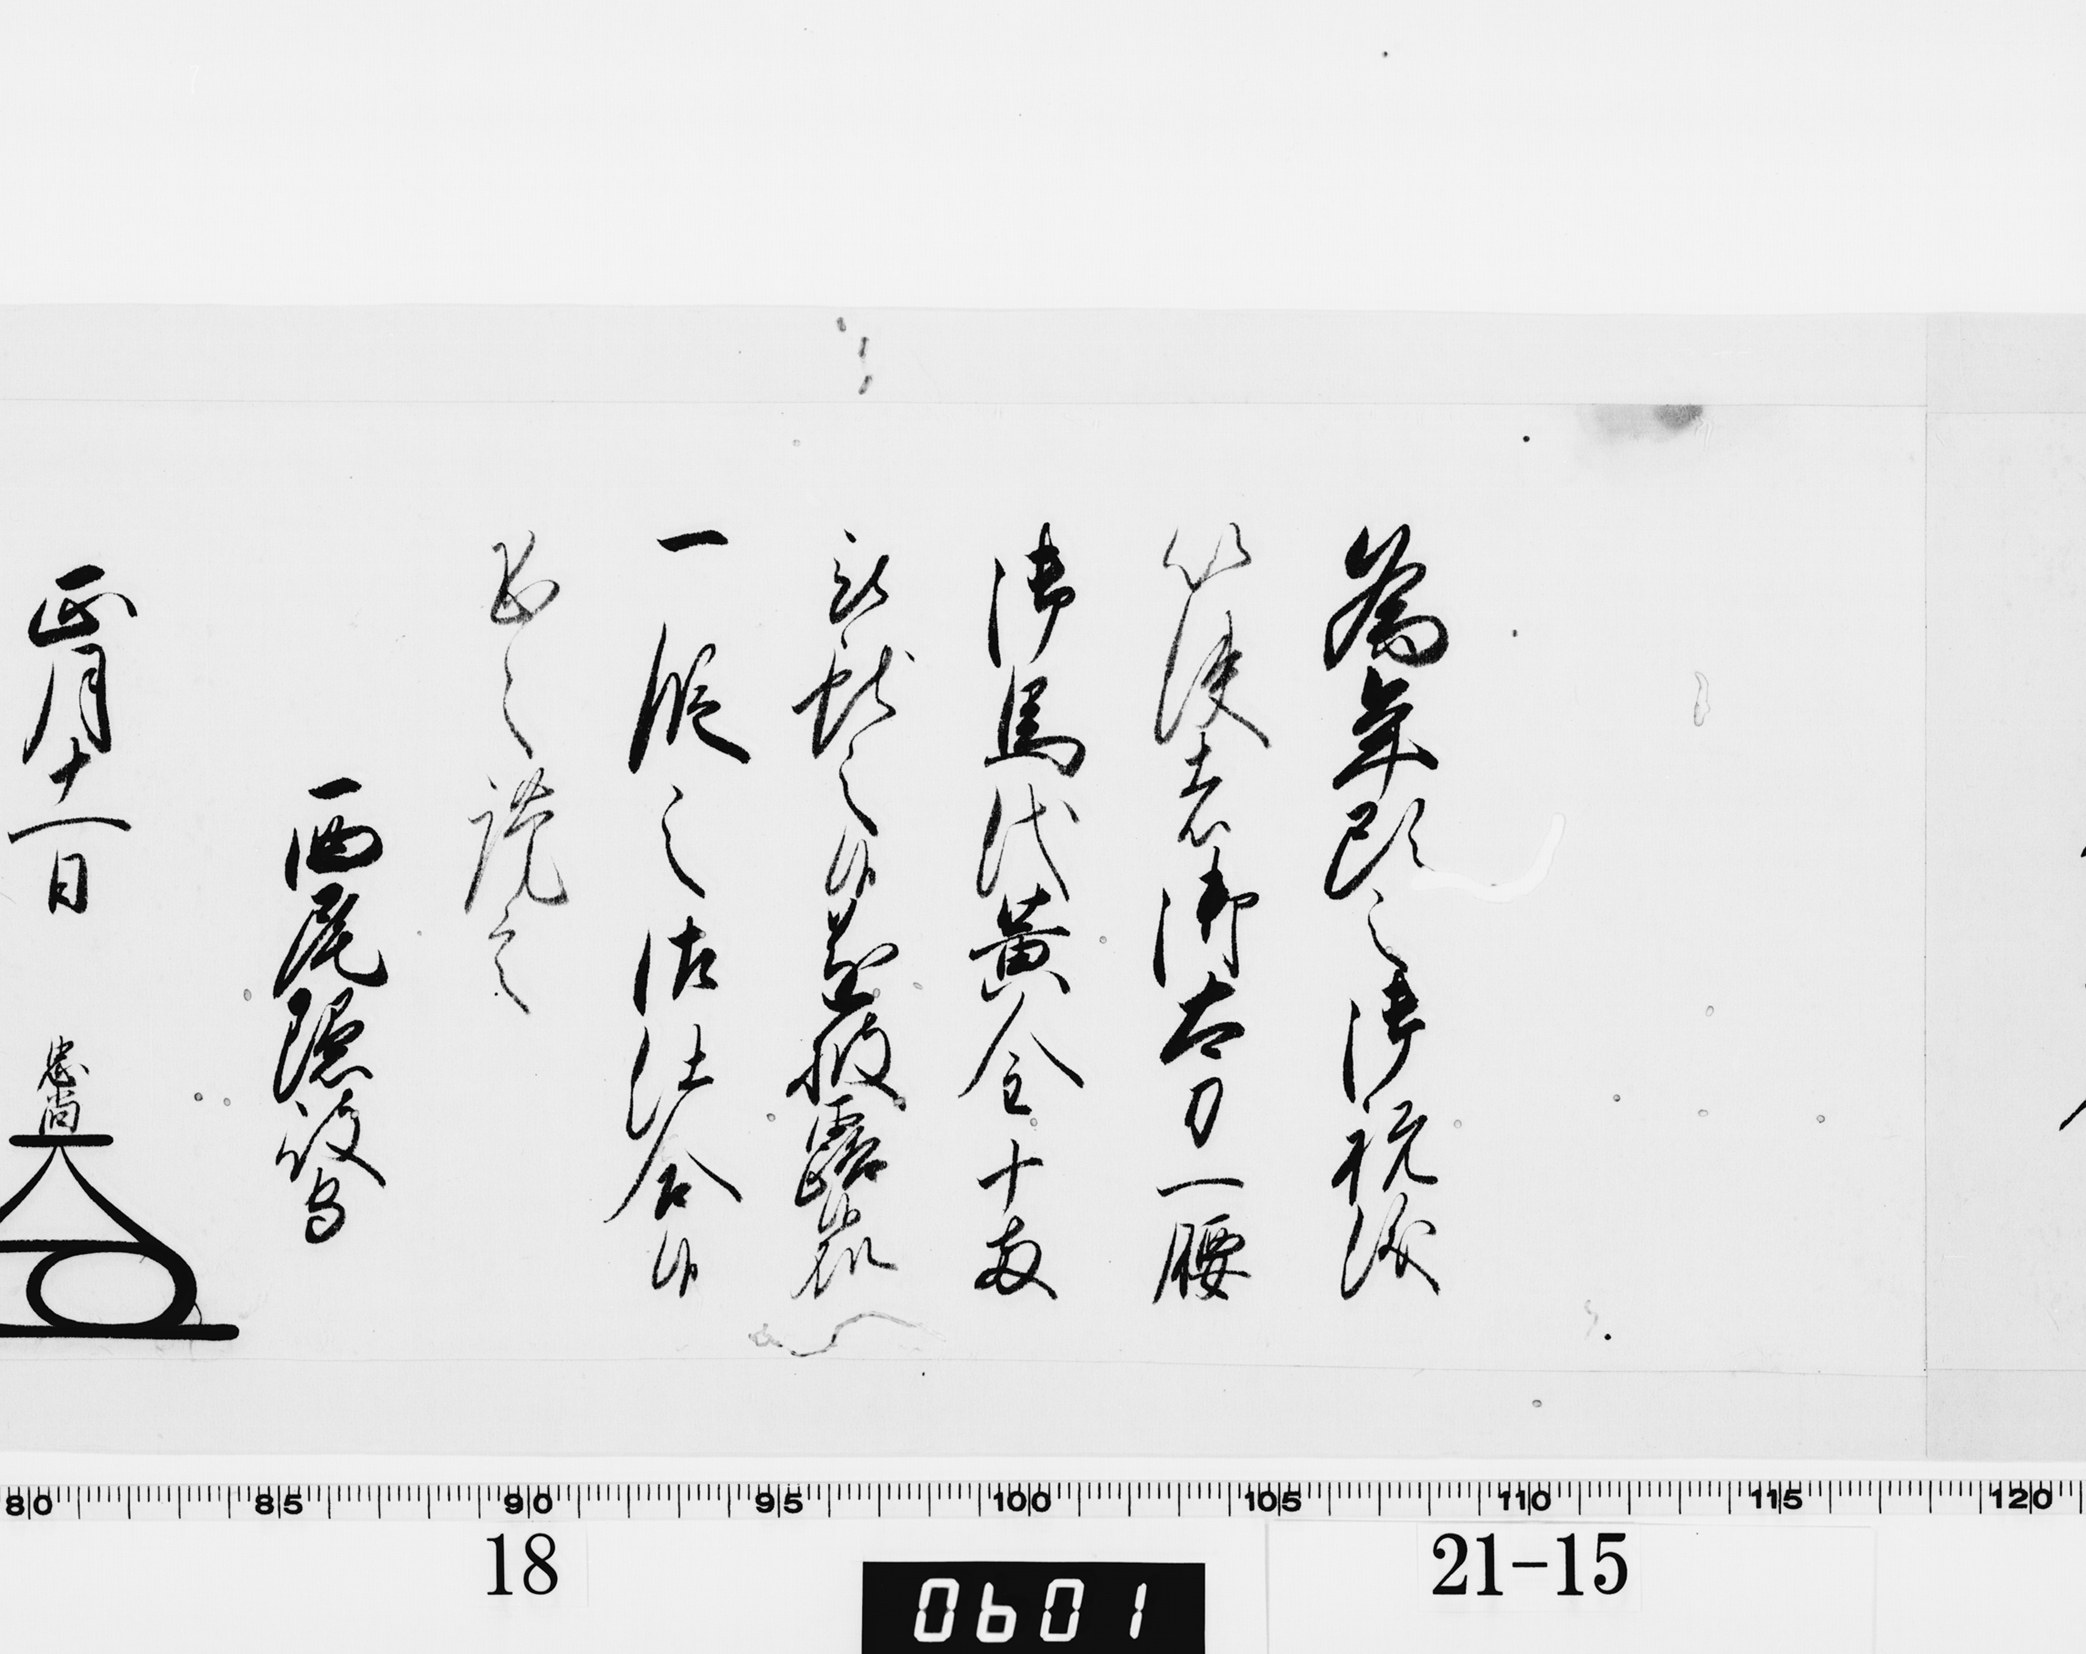 為年頭之御祝儀
以使者御太刀一腰
御馬代黄金十両
被献之候遂披露候処
一段之御仕合候
恐々謹言
西尾隠岐守
正月十一日 忠尚
80 85 90 95 100 105 110 115 120
18
0601
21-15